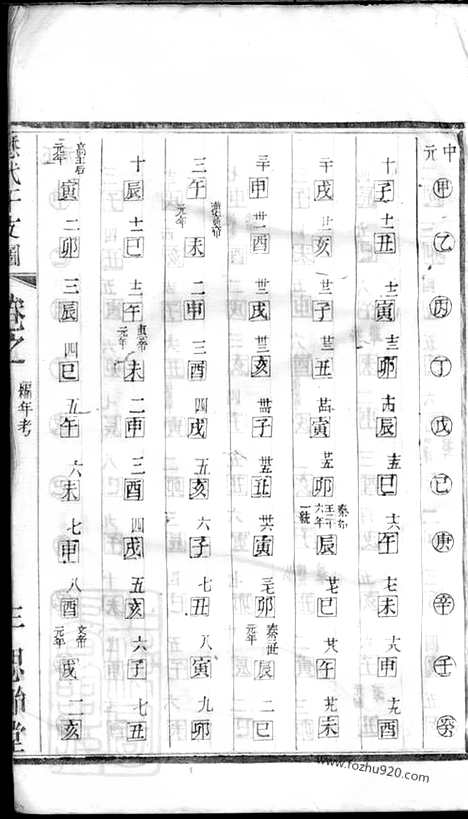 中元 甲 乙 丙 丁 戊 己 庚 辛 壬 癸
十子 十一丑 十二寅 十三卯 十四辰 十五巳 十六午 十七未 十八申 十九酉
二十戌 廿一亥 廿二子 廿三丑 廿四寅 廿五卯 秦始王二十六年一統辰 廿七巳 廿八午 廿九未
三十申 卅一酉 卅二戌 卅三亥 卅四子 卅五丑 卅六寅 卅七卯 秦二世元年辰 二巳
三午 漢高帝元年未 二申 三酉 四戌 五亥 六子 七丑 八寅 九卯
十辰 十一巳 十二午 惠帝元年未 二申 三酉 四戌 五亥 六子 七丑
高王后元年寅 二卯 三辰 四巳 五午 六未 七申 八酉 文帝元年戌 二亥
歷代干支圖 卷之一 編年考 三 思貽堂
www.fozhu920.com